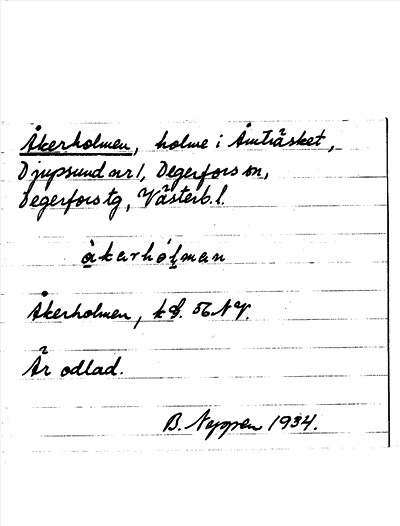 Åkerholmen, holme i Åmträsket,
Djupsund nr 1, Degerfors sn,
Degerfors tg, Västerb. l.
åkarhólman
Åkerholmen, kbl. 56 NV.
Är odlad.
B. Nyppen 1934.